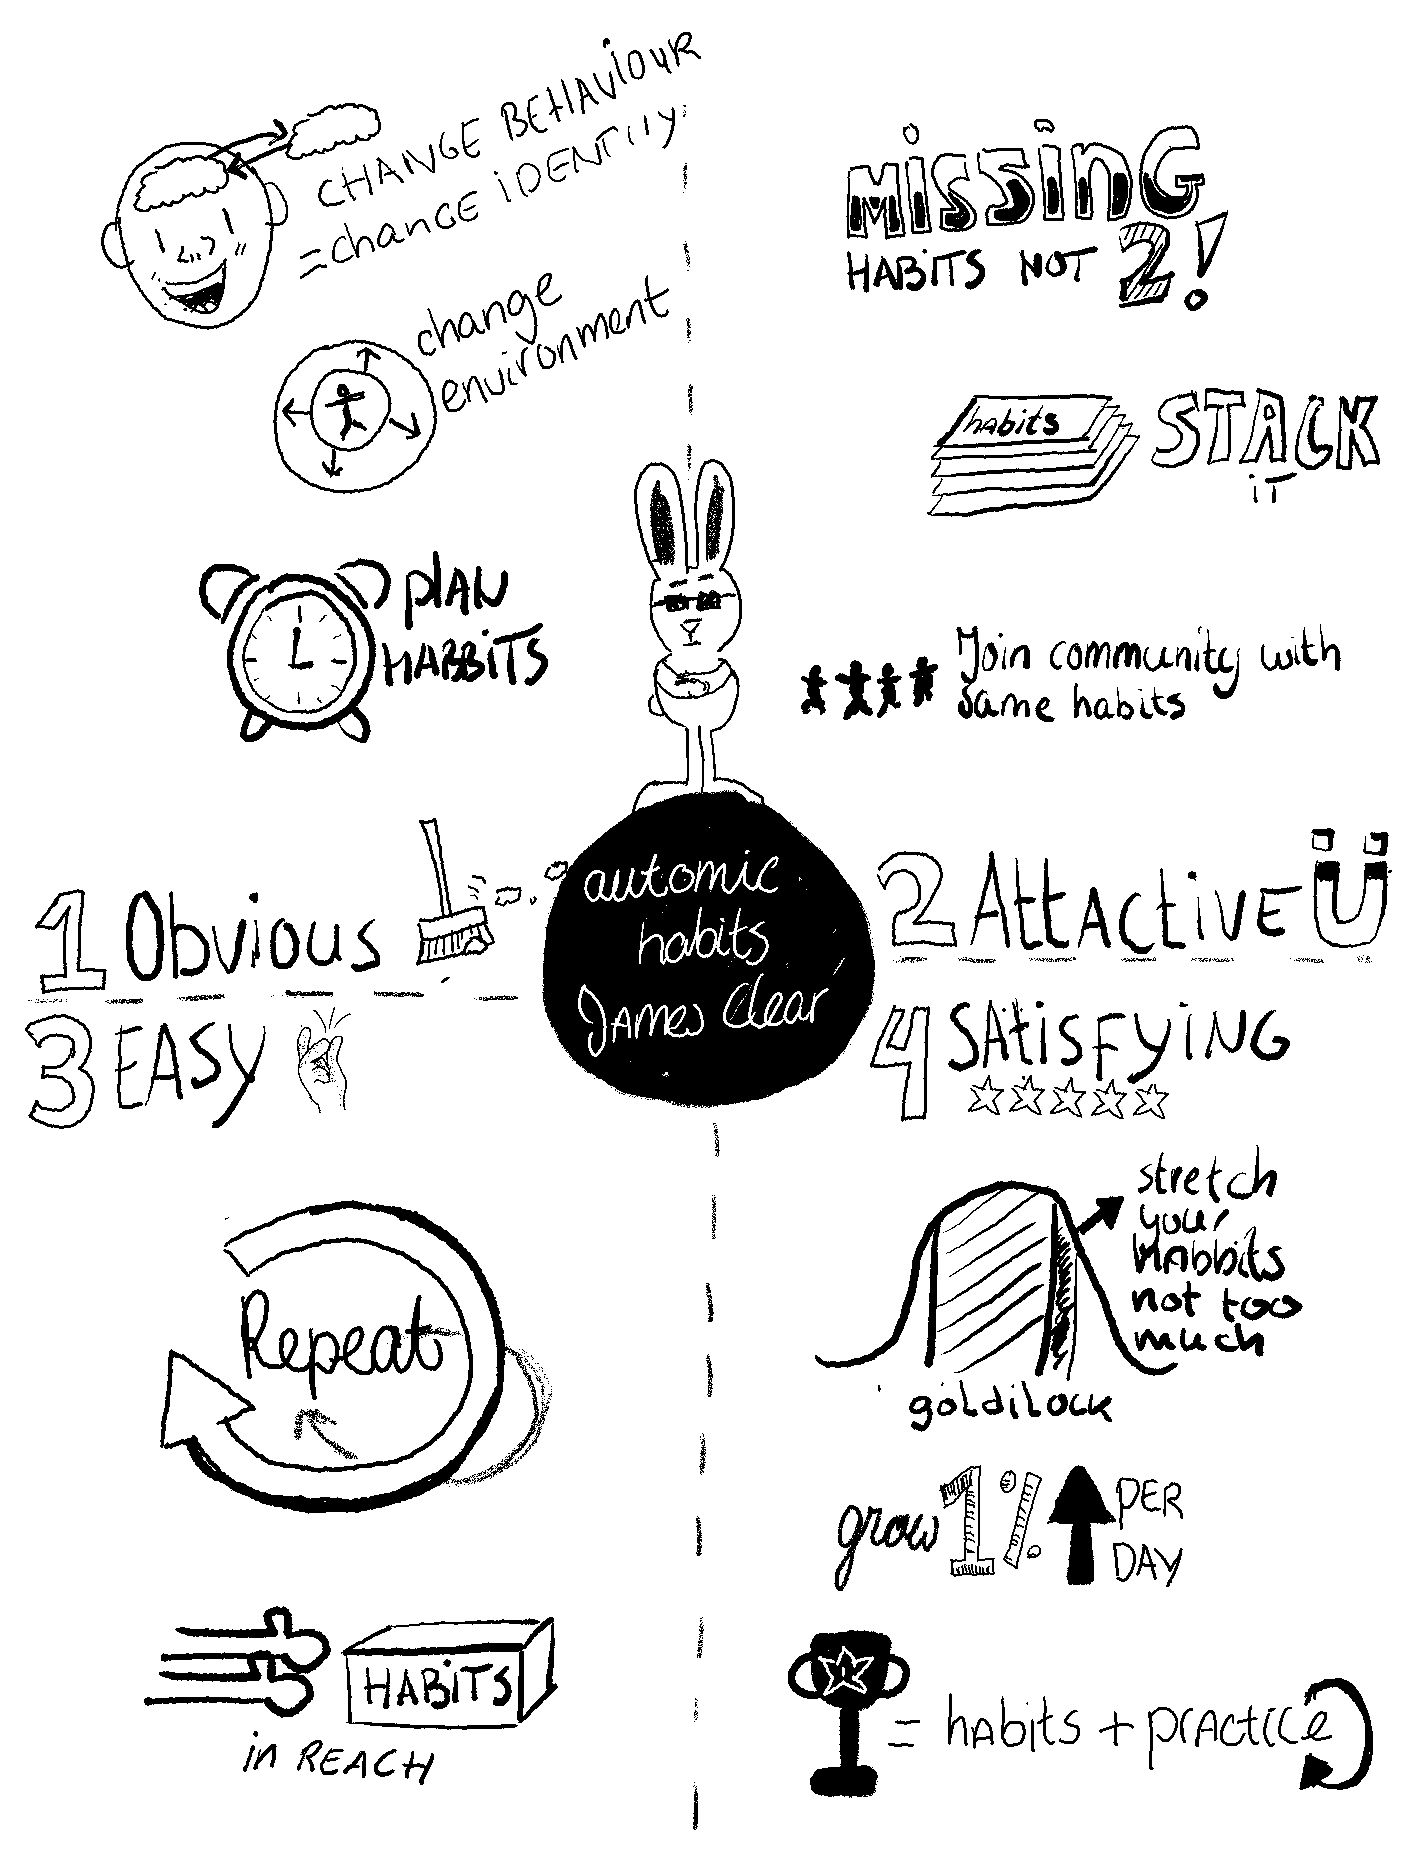 CHANGE BEHAViOUR
= change iDENTITY
change
environment
plAN
HABBiTS
MiSSiNG
HABiTS NOT 2!
habits
STACK
iT
Join community with
same habits
automic
habits
James Clear
1 Obvious
2 AttActivE
3 EASY
4 SAtiSFYiNG
Repeat
HABiTS
in REACH
stretch
your
HAbbits
not too
much
goldilock
grow 1% PER
DAY
1
= hAbits + prActice